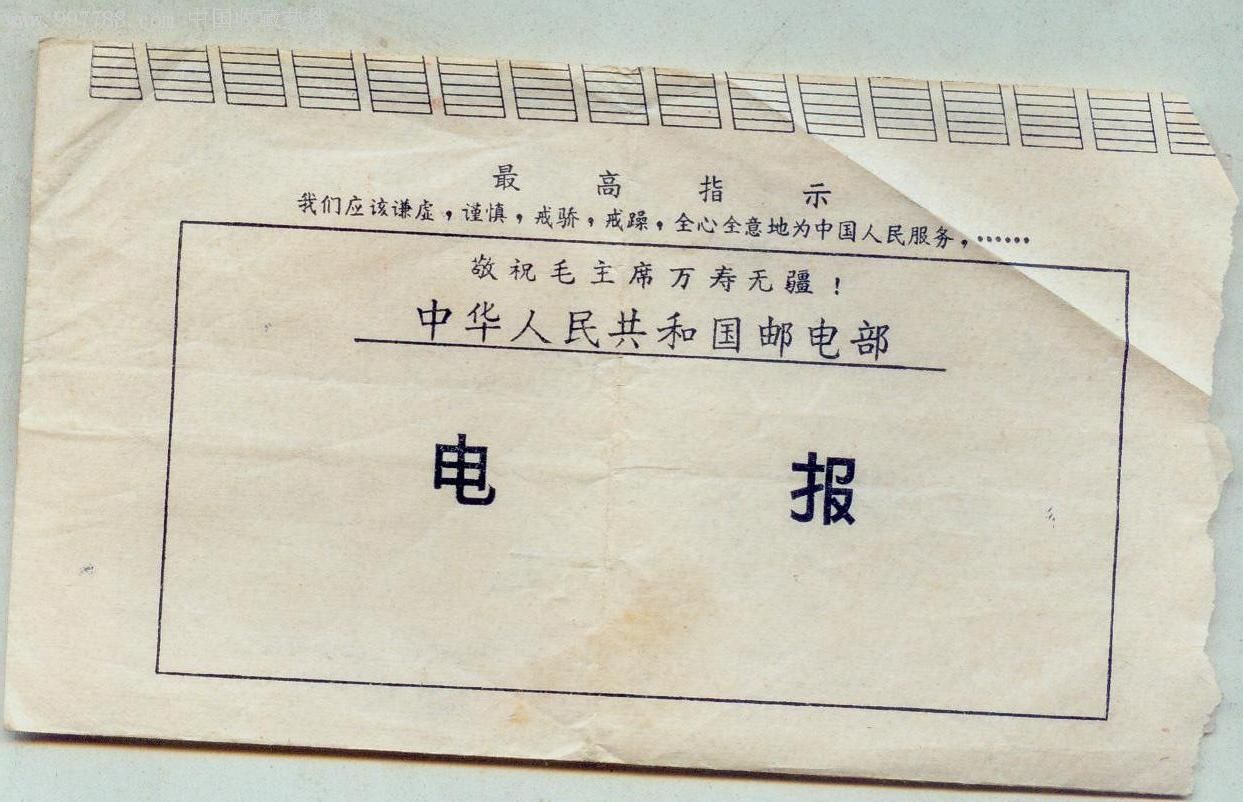 www.997788.com 中国收藏热线
最高指示
我们应该谦虚，谨慎，戒骄，戒躁，全心全意地为中国人民服务，……
敬祝毛主席万寿无疆！
中华人民共和国邮电部
电报